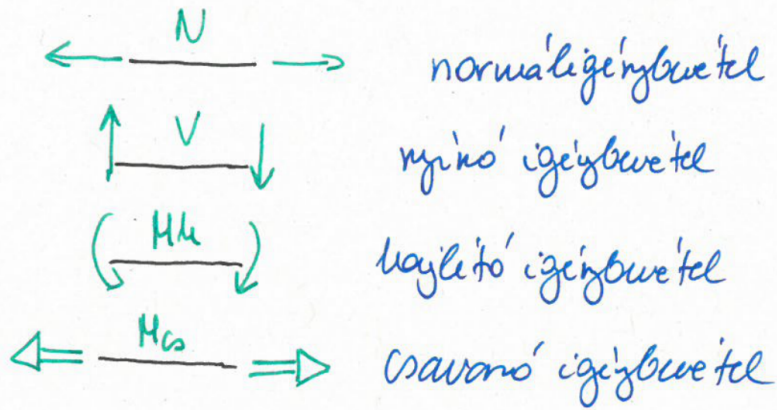 N normáligénybevétel
V nyíró igénybevétel
Mh hajlító igénybevétel
Mcs csavaró igénybevétel